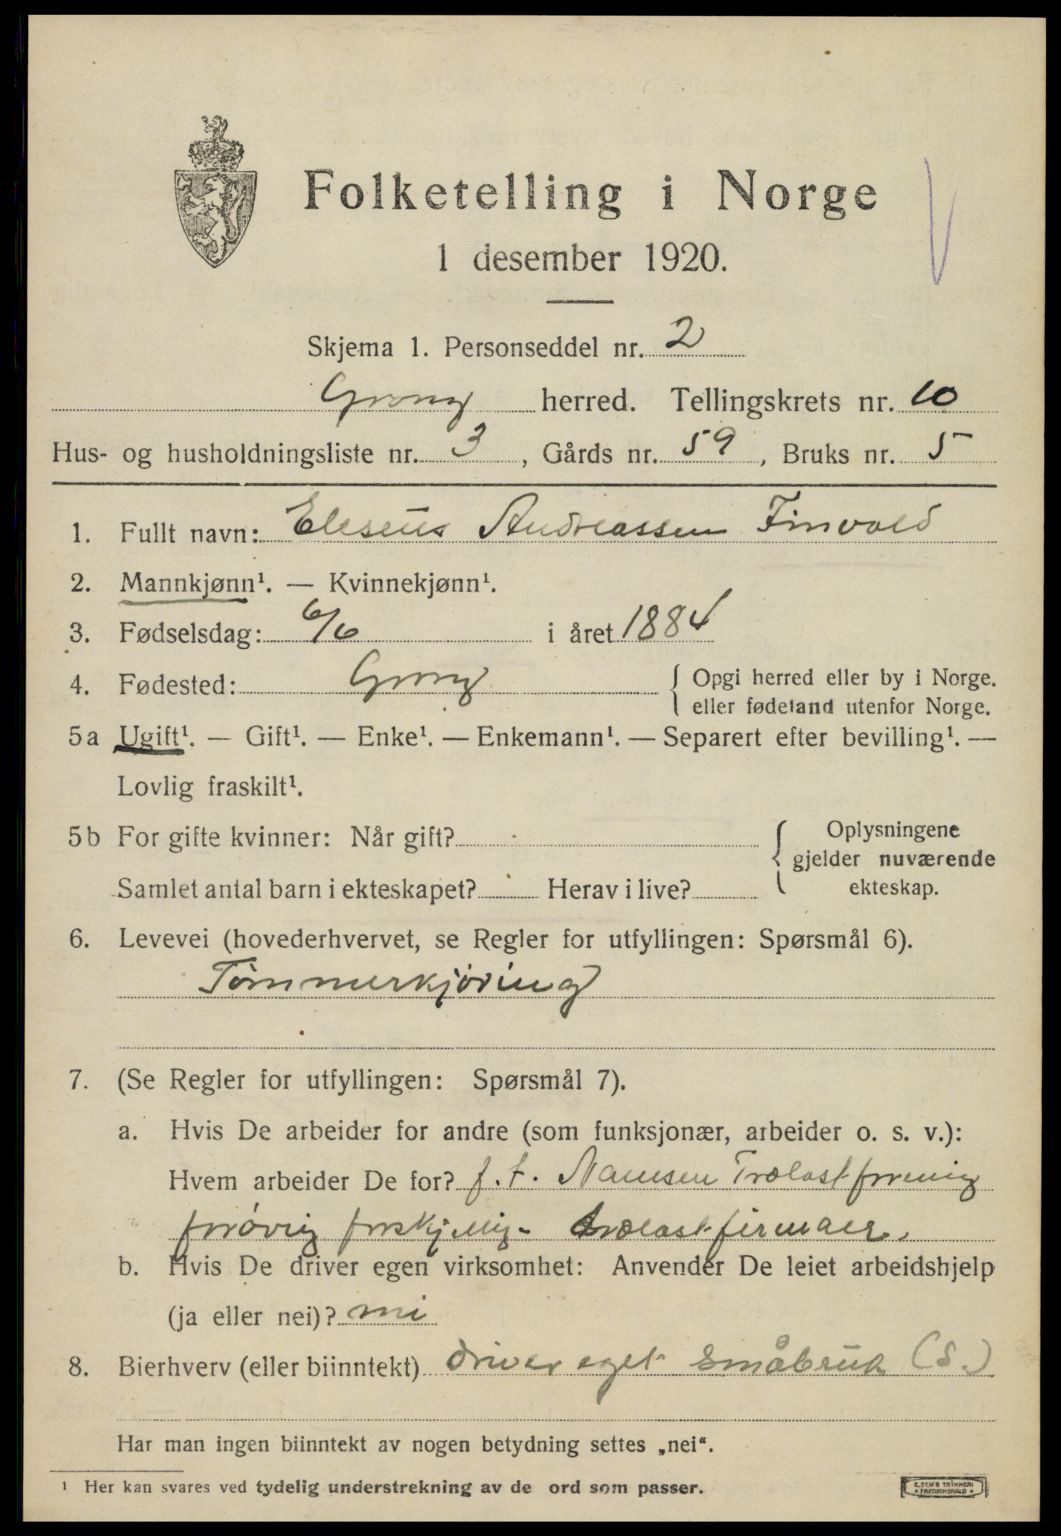 Folketelling i Norge
1 desember 1920.
Skjema 1. Personseddel nr. 2
Grong herred. Tellingskrets nr. 10
Hus- og husholdningsliste nr. 3, Gårds nr. 59, Bruks nr. 5
1. Fullt navn: Eleseus Andreassen Finvold
2. Mannkjønn¹. — Kvinnekjønn¹.
3. Fødselsdag: 6/6 i året 1884
4. Fødested: Grong { Opgi herred eller by i Norge.
eller fødeland utenfor Norge.
5a Ugift¹. — Gift¹. — Enke¹. — Enkemann¹. — Separert efter bevilling¹. —
Lovlig fraskilt¹.
5b For gifte kvinner: Når gift? { Oplysningene
gjelder nuværende
Samlet antal barn i ekteskapet? Herav i live? ekteskap.
6. Levevei (hovederhvervet, se Regler for utfyllingen: Spørsmål 6).
Tømmerkjøring
7. (Se Regler for utfyllingen: Spørsmål 7).
a. Hvis De arbeider for andre (som funksjonær, arbeider o. s. v.):
Hvem arbeider De for? f. t. Namsen Trælastforening
forøvrig forskjellig- trælastfirmaer.
b. Hvis De driver egen virksomhet: Anvender De leiet arbeidshjelp
(ja eller nei)? nei
8. Bierhverv (eller biinntekt) driver eget småbruk (S.)
Har man ingen biinntekt av nogen betydning settes „nei“.
¹ Her kan svares ved tydelig understrekning av de ord som passer.